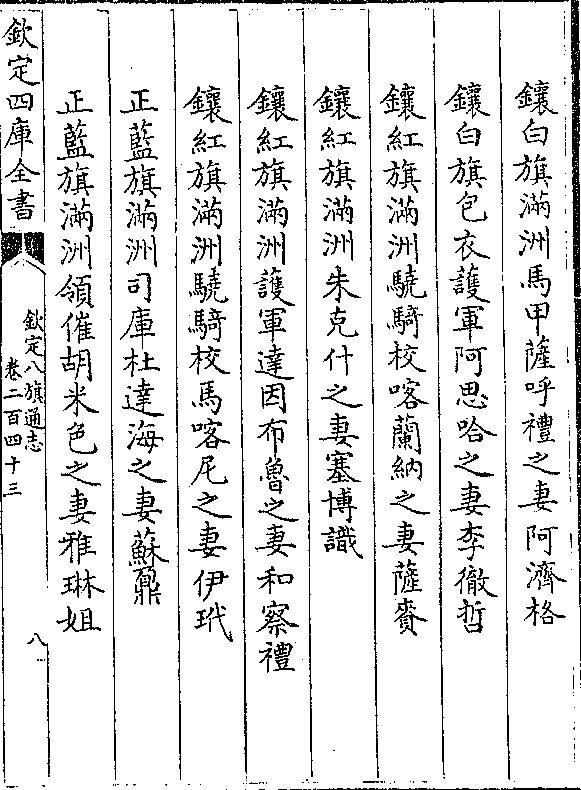 鑲白旗滿洲馬甲薩呼禮之妻阿濟格
鑲白旗包衣護軍阿思哈之妻李徹哲
鑲紅旗滿洲驍騎校喀蘭納之妻薩賚
鑲紅旗滿洲朱克什之妻塞博識
鑲紅旗滿洲護軍達因布魯之妻和察禮
鑲紅旗滿洲驍騎校馬喀尼之妻伊玳
正藍旗滿洲司庫杜達海之妻蘇鼐
正藍旗滿洲領催胡米色之妻雅琳姐
欽定四庫全書
欽定八旗通志
卷二百四十三
八